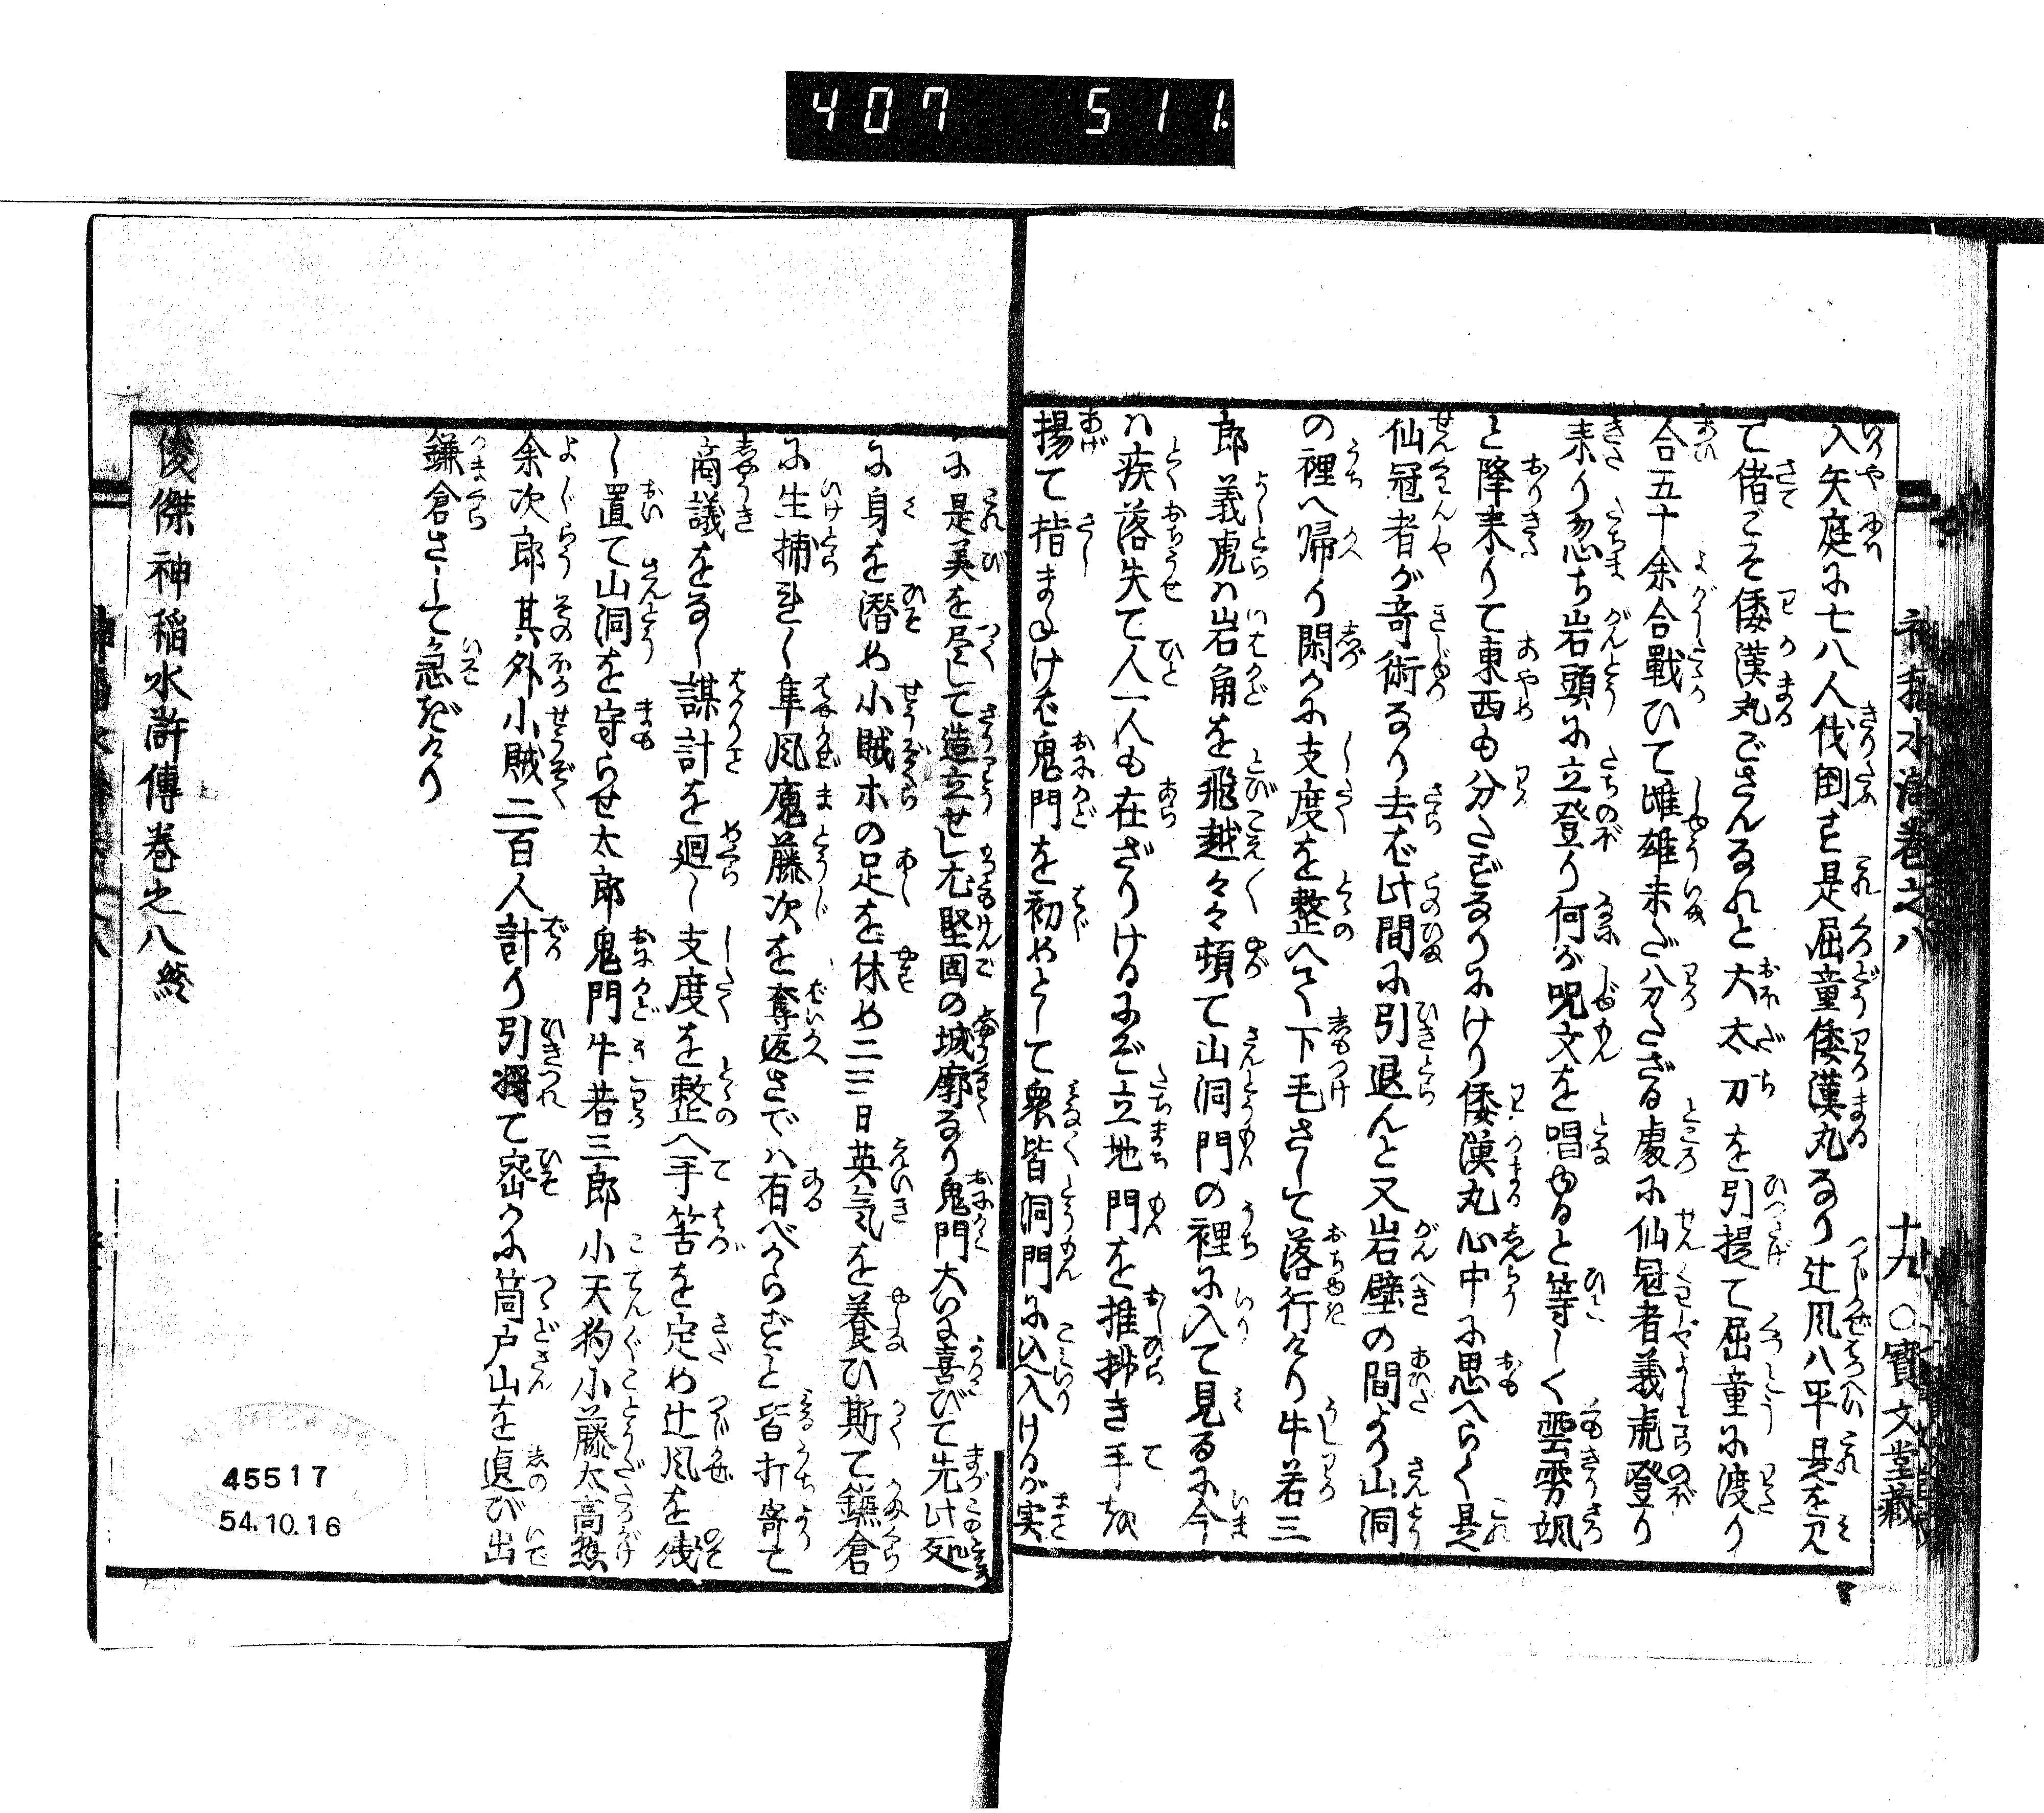 407 511.
神稲水滸巻之八 十九 ○寳文堂藏
入矢庭に七八人伐倒す是屈童倭漢丸なり辻風八平是を見
て偖こそ倭漢丸ござんなれと大太刀を引提て屈童に渡り
合五十余合戰ひて雌雄未だ分たざる處に仙冠者義虎登り
来り忽ち岩頭に立登り何か呪文を唱ゆると等しく雲雰颯
と降来りて東西も分たずなりにけり倭漢丸心中に思へらく是
仙冠者が竒術なり去ば此間に引退んと又岩壁の間より山洞
の裡へ帰り閑かに支度を整へて下毛さして落行けり牛若三
郎義虎ハ岩角を飛越々々頓て山洞門の裡に入て見るに今
ハ疾落失て人一人も在ざりけるにぞ立地門を推排き手を
揚て指まねけば鬼門を初めとして衆皆洞門に込入けるが実
に是美を尽して造立せし尤堅固の城廓なり鬼門大に喜びて先此処
に身を潜め小賊ホの足を休め二三日英気を養ひ斯て鎌倉
に生捕れし隼風魔藤次を奪返さでハ有べからずと皆打寄て
商議をなし謀計を廻し支度を整へ手筈を定め辻風を残
し置て山洞を守らせ太郎鬼門牛若三郎小天狗小藤太高𢡛
余次郎其外小賊二百人計り引攦て密かに筒戸山を𨓜び出
鎌倉さして急ぎけり
俊傑神稲水滸傳巻之八終
45517
54.10.16